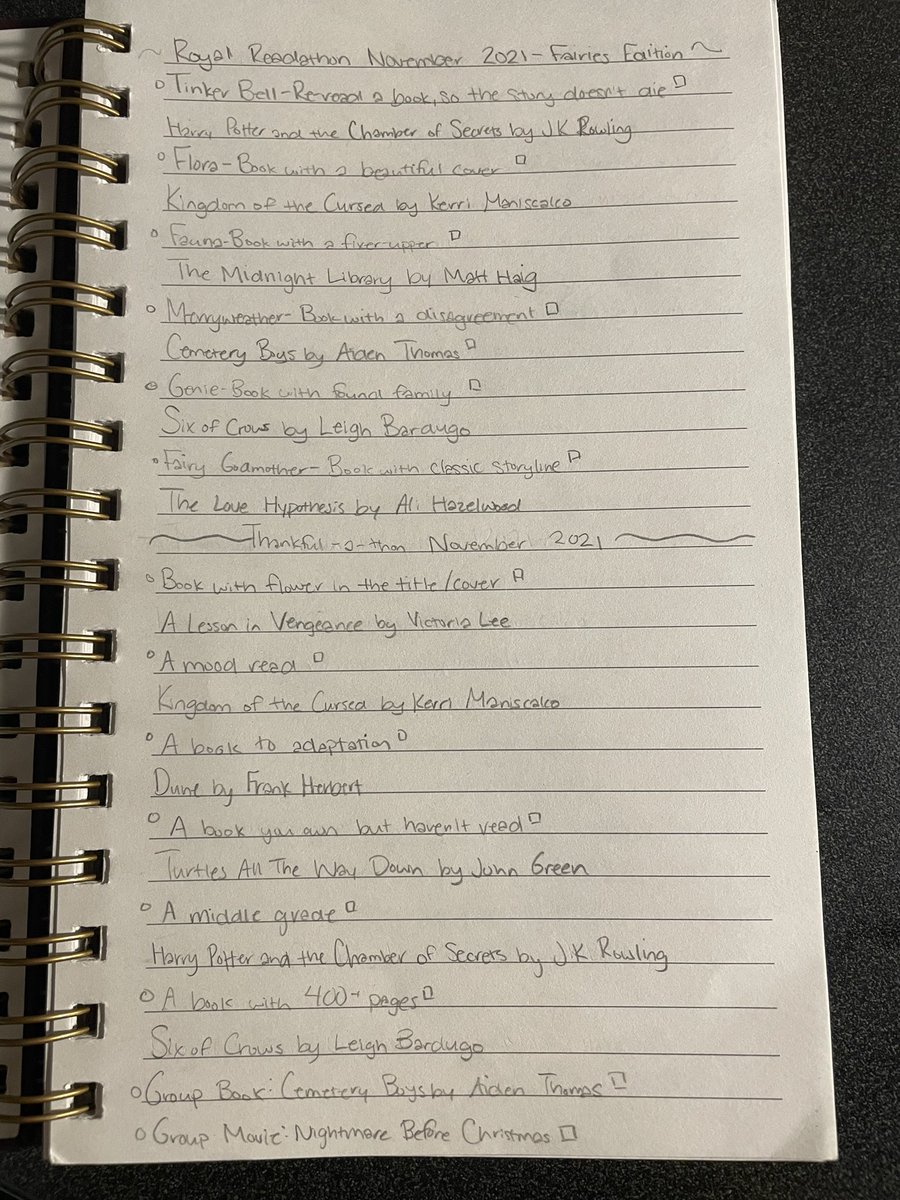 ~ Royal Readathon November 2021 - Fairies Edition ~
○ Tinker Bell - Re-read a book, so the story doesn't die □
Harry Potter and the Chamber of Secrets by JK Rowling
○ Flora - Book with a beautiful cover □
Kingdom of the Cursed by Kerri Maniscalco
○ Fauna - Book with a fixer upper □
The Midnight Library by Matt Haig
○ Merryweather - Book with a disagreement □
Cemetery Boys by Aiden Thomas □
○ Genie - Book with found family □
Six of Crows by Leigh Bardugo
○ Fairy Godmother - Book with classic storyline □
The Love Hypothesis by Ali Hazelwood
~ Thankful-a-thon November 2021 ~
○ Book with flower in the title/cover □
A Lesson in Vengeance by Victoria Lee
○ A mood read □
Kingdom of the Cursed by Kerri Maniscalco
○ A book to adaptation □
Dune by Frank Herbert
○ A book you own but haven't read □
Turtles All The Way Down by John Green
○ A middle grade □
Harry Potter and the Chamber of Secrets by J.K Rowling
○ A book with 400+ pages □
Six of Crows by Leigh Bardugo
○ Group Book: Cemetery Boys by Aiden Thomas □
○ Group Movie: Nightmare Before Christmas □